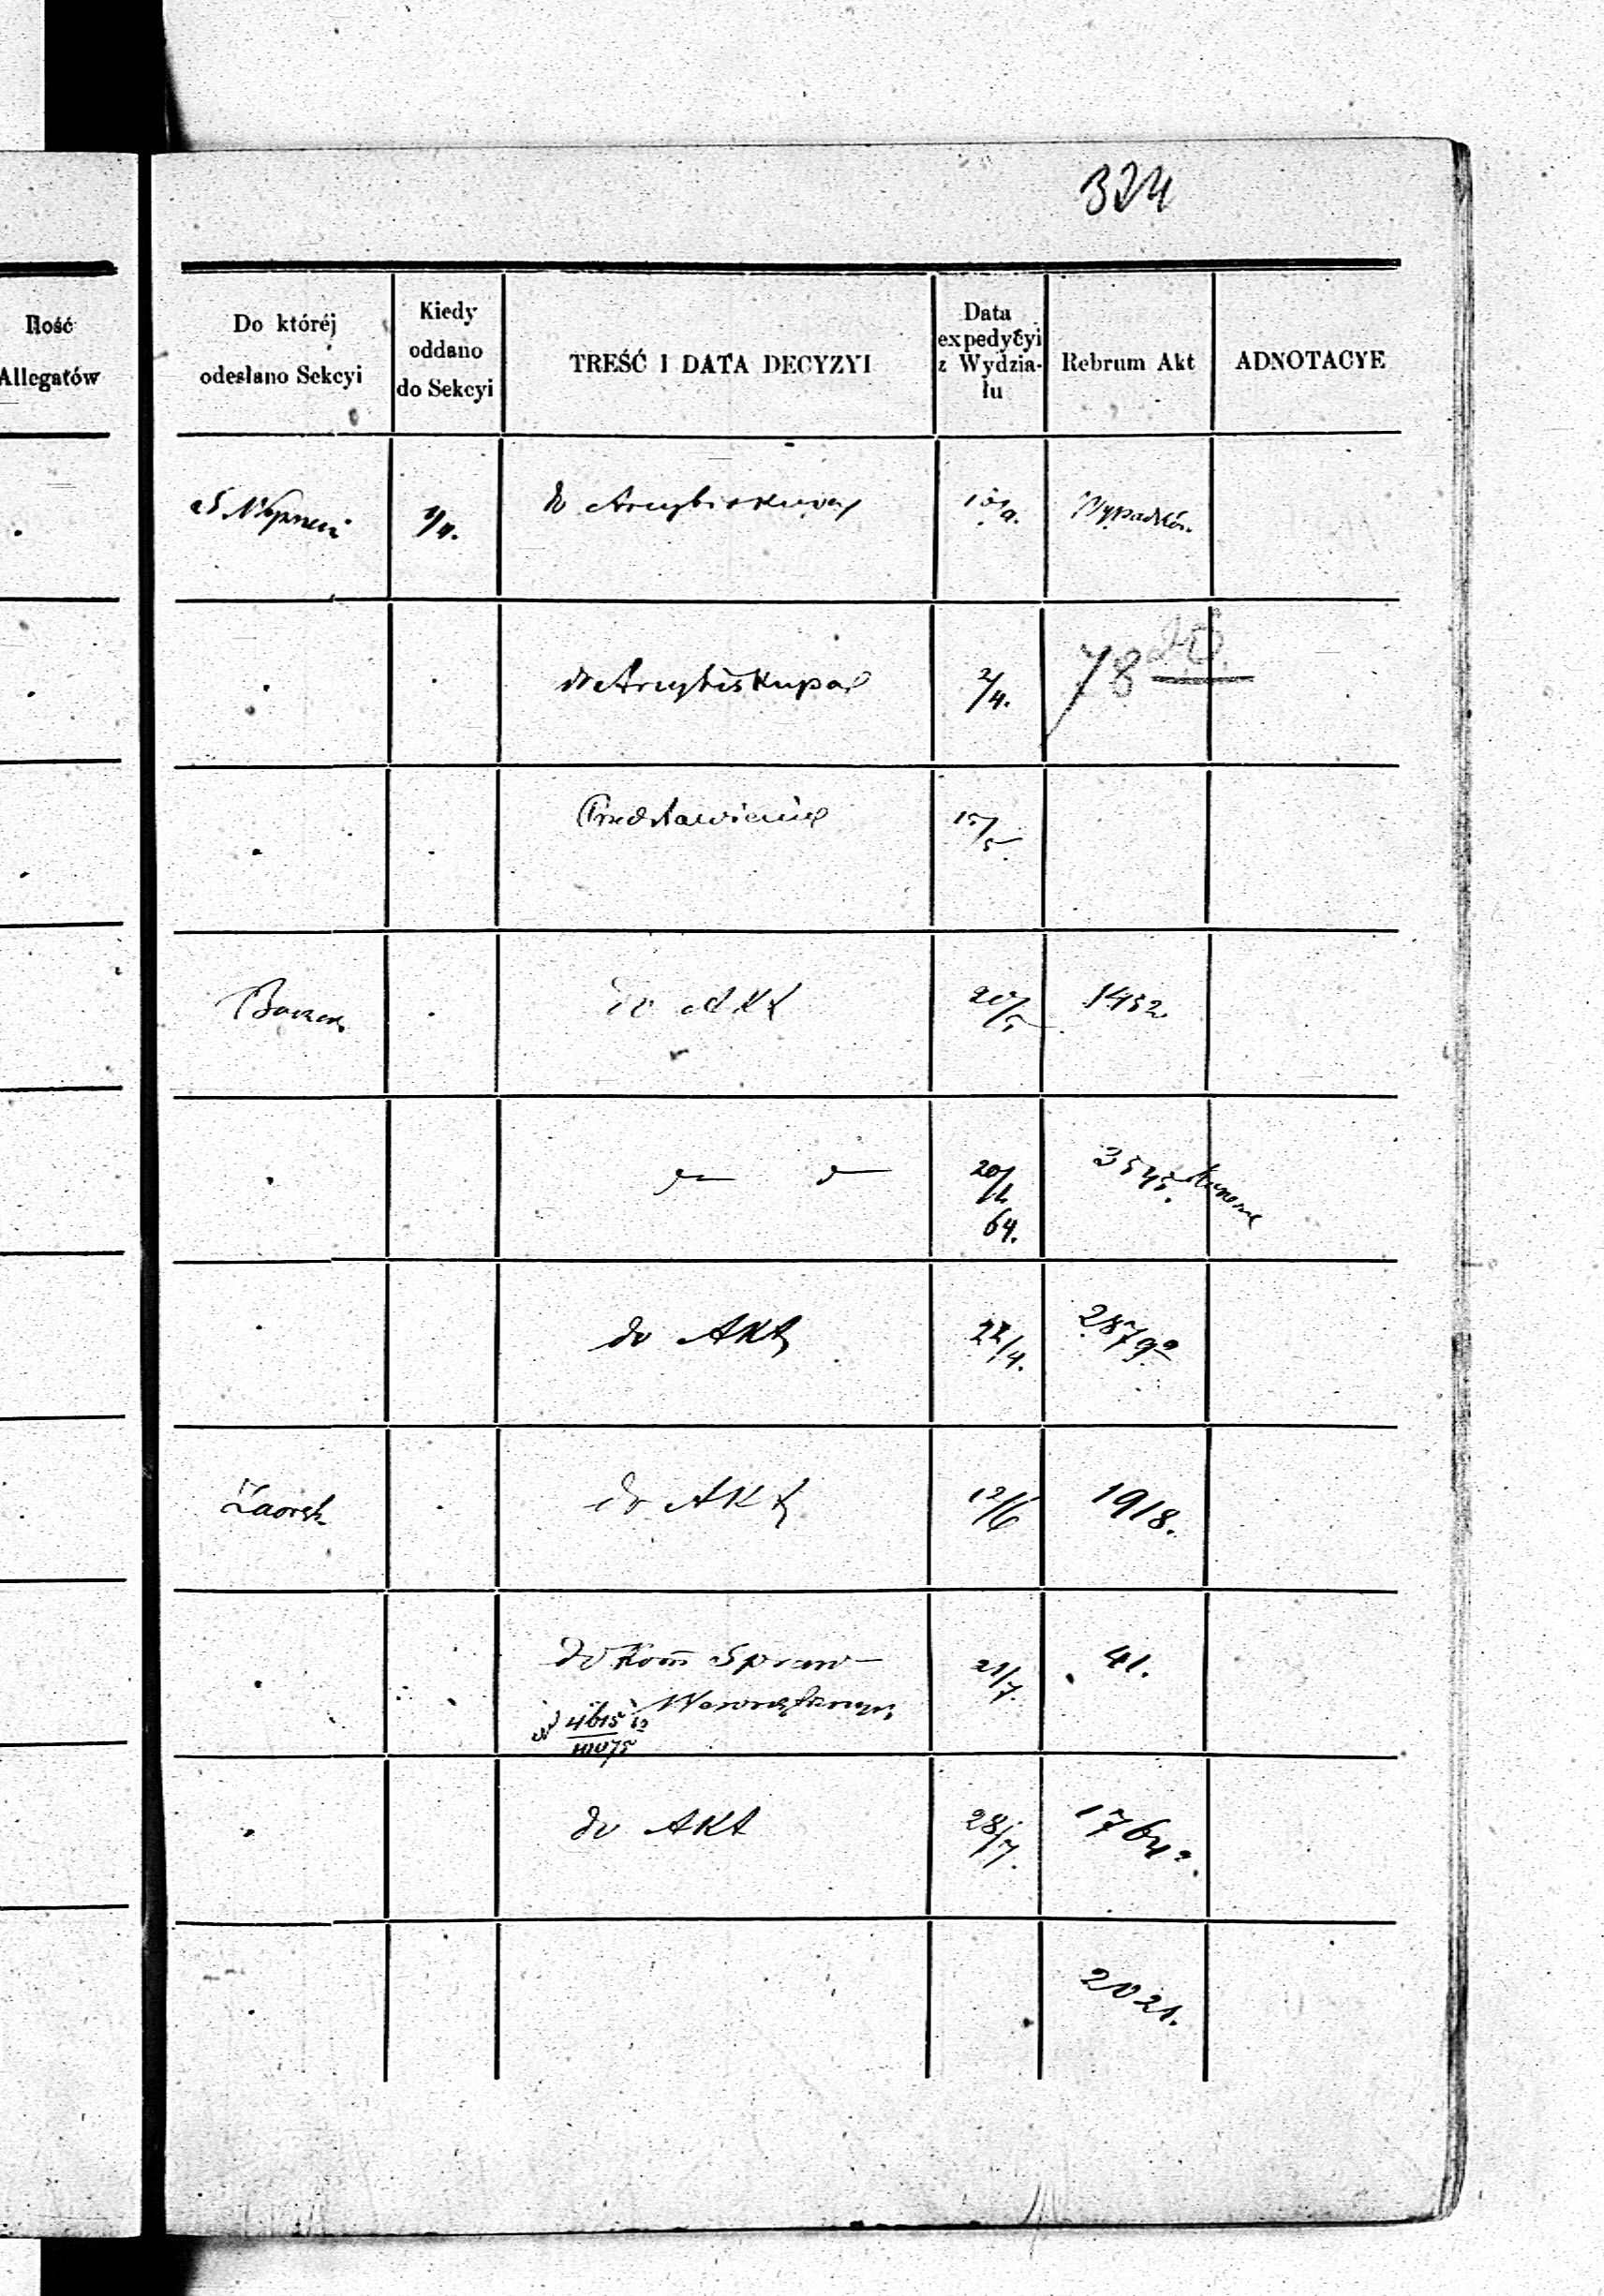 324
Ilość
Allegatów
Do któréj
odesłano Sekcyi
Kiedy
oddano
do Sekcyi
TREŚĆ I DATA DECYZYI
Data
expedycyi
z Wydzia-
łu
Rebrum Akt
ADNOTACYE
1/4.
do Arcybiskupa
Wypadków
do Arcybiskupa
2/4.
78
Przedstawienie
15/5.
do Akt
20/5
1452
20/
64.
3545.
do Akt
22/4.
2879
Zaorsk
do Akt
12/6
1918.
do Kom Spraw
Wewnętrznych
4615
11075
21/7.
41.
do Akt
28/7.
1764
2021.